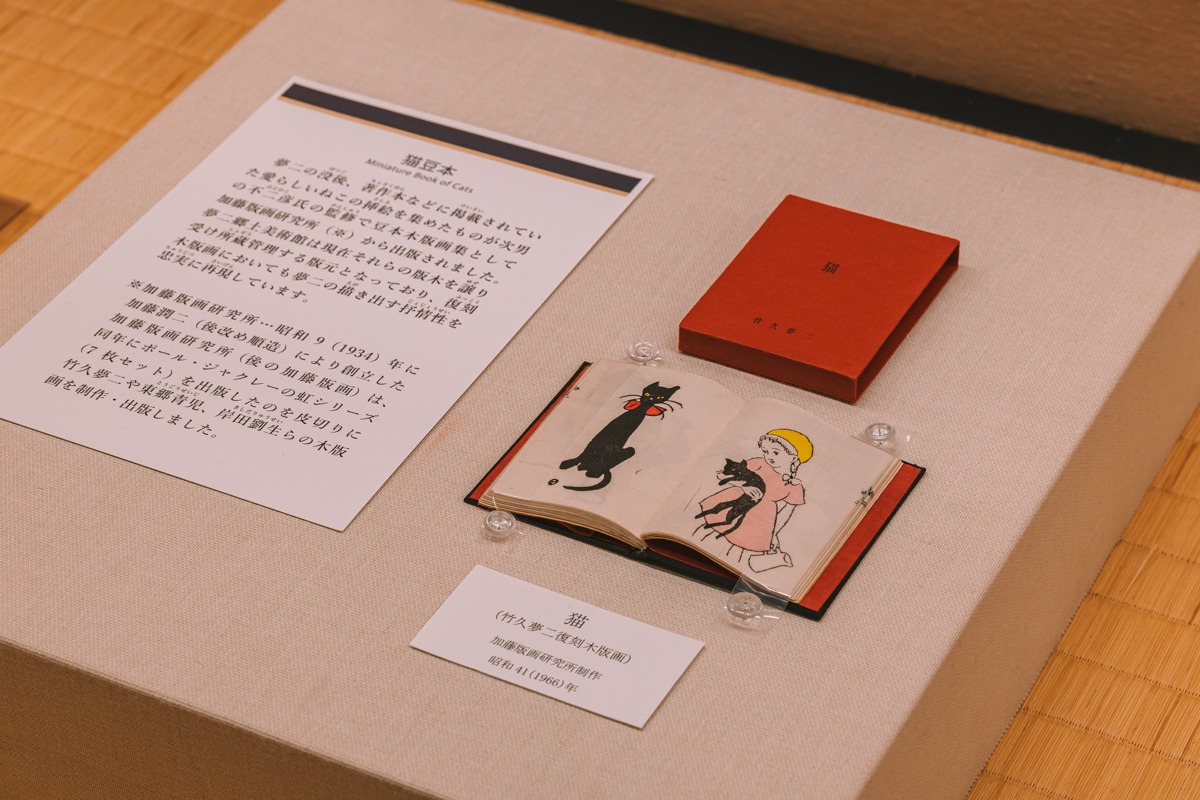 猫豆本
Miniature Book of Cats
夢二の没後、著作本などに掲載されてい
た愛らしいねこの挿絵を集めたものが次男
の不二彦氏の監修で豆本木版画集として
加藤版画研究所（※）から出版されました。
夢二郷土美術館は現在それらの版木を譲り
受け所蔵管理する版元となっており、復刻
木版画においても夢二の描き出す抒情性を
忠実に再現しています。
※加藤版画研究所…昭和 9（1934）年に
加藤潤二（後改め順造）により創立した
加藤版画研究所（後の加藤版画）は、
同年にポール・ジャクレーの虹シリーズ
（7 枚セット）を出版したのを皮切りに
竹久夢二や東郷青児、岸田劉生らの木版
画を制作・出版しました。
猫
竹久夢二
猫
（竹久夢二復刻木版画）
加藤版画研究所制作
昭和 41(1966)年